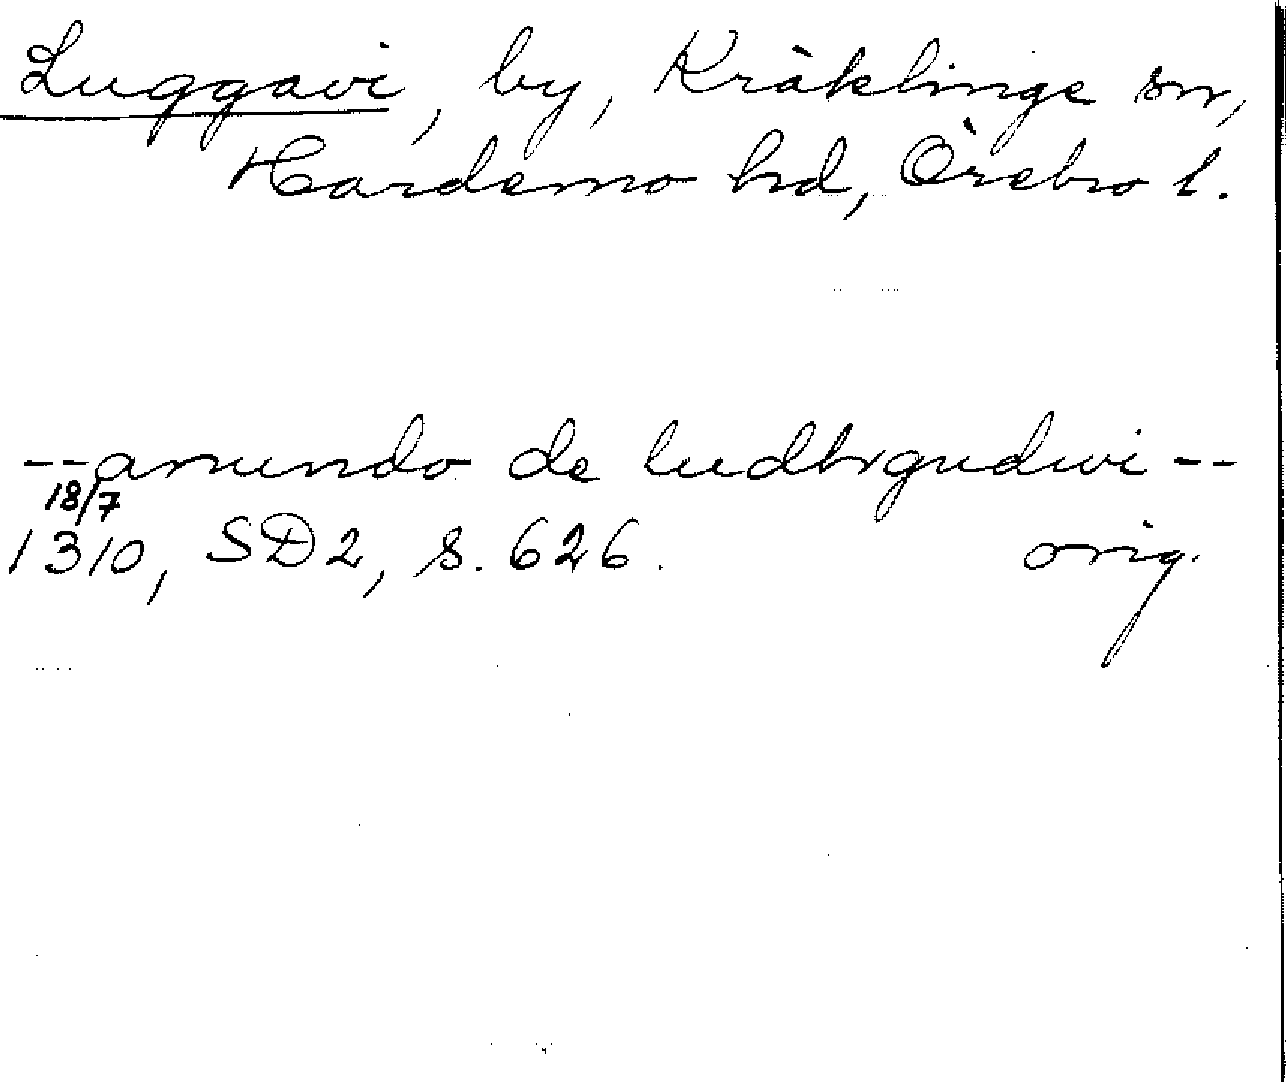 Luggavi, by, Kräklinge sn,
Hardemo hd, Örebro l.
--amundo de ludhrgudwi--
18/7
1310, SD2, s. 626. orig.